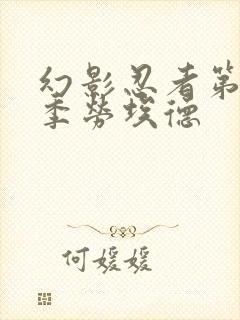 幻影忍者第
季劳埃德
何媛媛